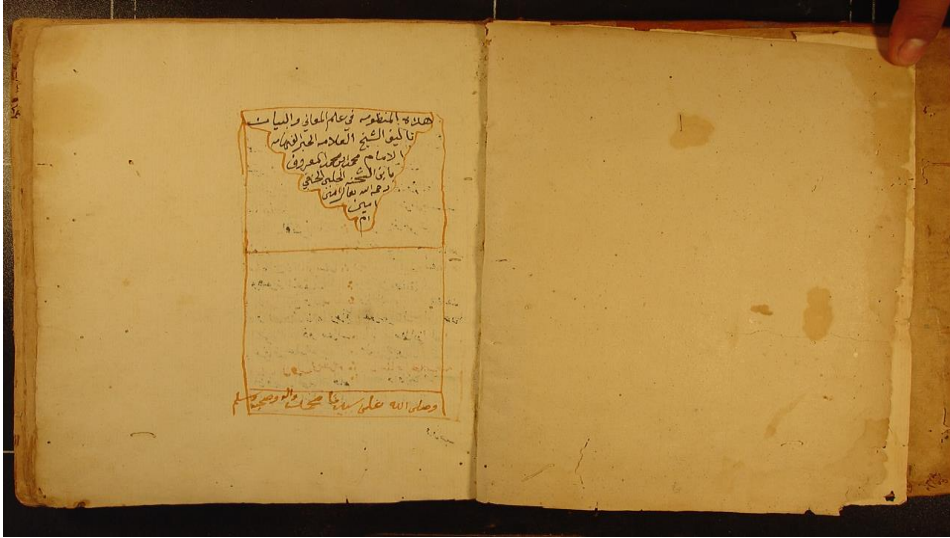 هذه المنظومه في علم المعاني والبيان
تاليف الشيخ العلامه الحبر الفهامه
الامام محمد بن محمد المعروف
بابن الشحنه الحلبي الحنفي
رحمه الله تعالى امين
امين
ام
وصلى الله على سيدنا محمد واله وصحبه وسلم